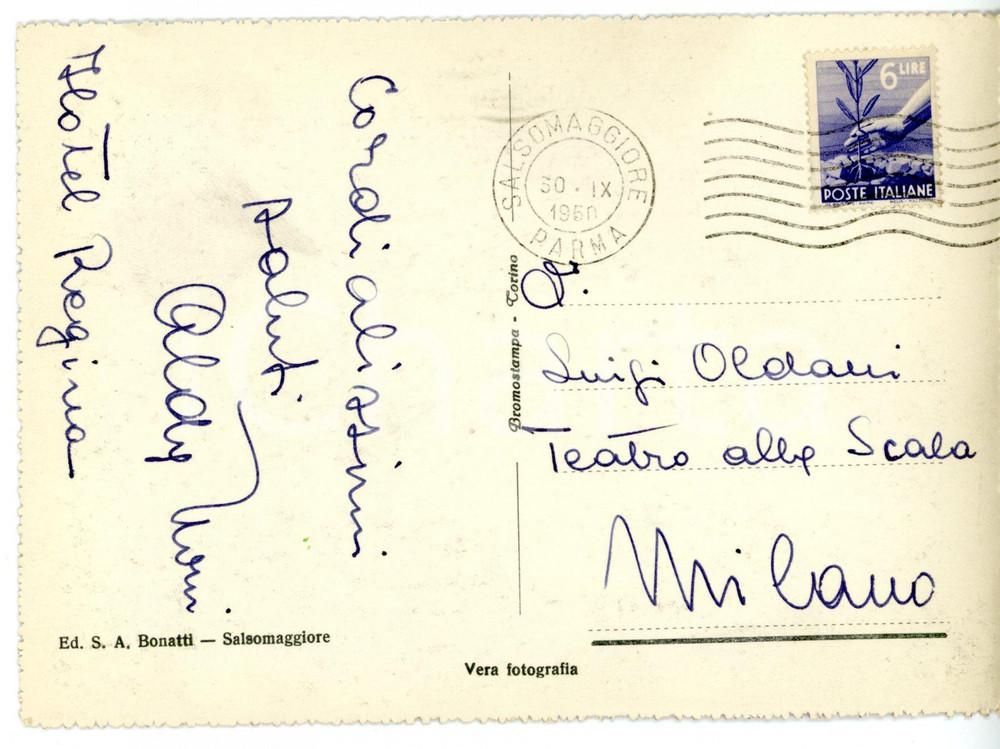 Hotel Regina
Cordialissimi
saluti
Aldo
6 LIRE
POSTE ITALIANE
SALSOMAGGIORE
30 · IX
1950
PARMA
Bromostampa - Torino
Luigi Oldani
Teatro alla Scala
Milano
Ed. S. A. Bonatti — Salsomaggiore
Vera fotografia